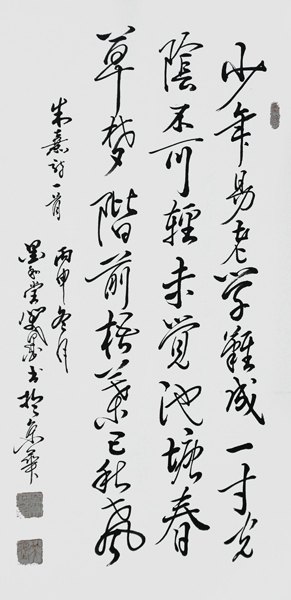 少年易老学難成一寸光
陰不可輕未覺池塘春
草梦階前梧葉已秋聲
朱熹詩一首
丙申冬月
墨堂書於京華